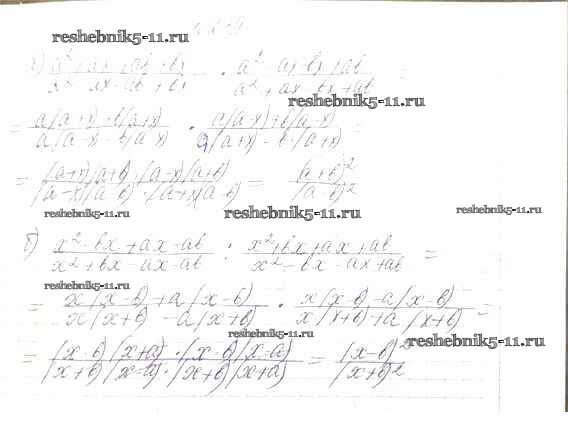 reshebnik5-11.ru
a² + ax + ab + bx / a² - ax - ab + bx · a² - ax - bx + ab / a² + ax - bx - ab =
reshebnik5-11.ru
= a(a+x)+b(a+x) / a(a-x)-b(a-x) · a(a-x)+b(a-x) / a(a+x)-b(a+x) =
reshebnik5-11.ru
= (a+x)(a+b)·(a-x)(a+b) / (a-x)(a-b)·(a+x)(a-b) = (a+b)² / (a-b)²
reshebnik5-11.ru reshebnik5-11.ru reshebnik5-11.ru
б) x²-bx+ax-ab / x²+bx-ax-ab : x²+bx+ax+ab / x²-bx-ax+ab =
reshebnik5-11.ru
= x(x-b)+a(x-b) / x(x+b)-a(x+b) · x(x-b)-a(x-b) / x(x+b)+a(x+b) =
reshebnik5-11.ru reshebnik5-11.ru
= (x-b)(x+a)·(x-b)(x-a) / (x+b)(x-a)·(x+b)(x+a) = (x-b)² / (x+b)²
reshebnik5-11.ru